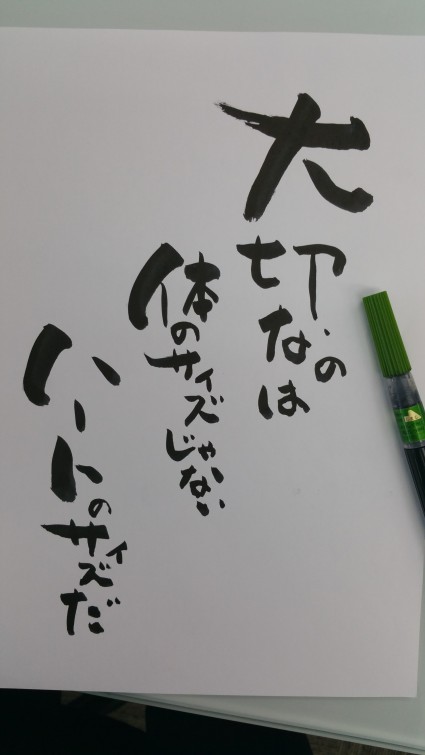 大切なのは
体のサイズじゃない
ハートのサイズだ